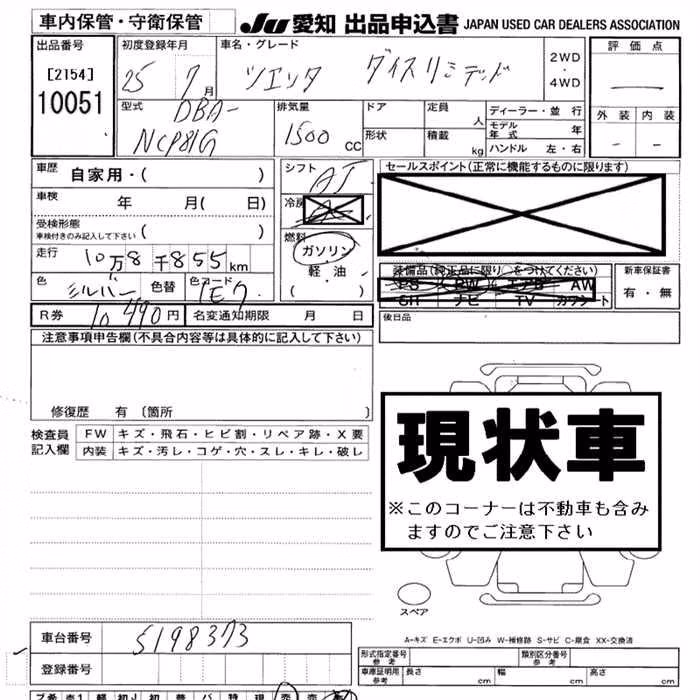 車内保管・守衛保管
JU 愛知 出品申込書 JAPAN USED CAR DEALERS ASSOCIATION
出品番号
[2154]
10051
初度登録年月
25 7月
車名・グレード
シエンタ ダイスリミテッド
2WD・4WD
評価点
外装 内装
型式
DBA-
NCP81G
排気量
1500 cc
ドア
形状
定員 人
積載 kg
ディーラー・並行
モデル年式 年
ハンドル 左・右
車歴 自家用・( )
車検 年 月( 日)
受検形態
車検付きのみ記入して下さい ( )
走行 10万8千855km
色 シルバー 色替 色コード 1E7
シフト AT
冷房
燃料
ガソリン
軽・油
( )
R券 10,490円 名変通知期限 月 日
セールスポイント(正常に機能するものに限ります)
装備品(純正品に限り○をつけてください)
PS PW エアB AW
SR ナビ TV カワシート
新車保証書
有・無
後日品
注意事項申告欄(不具合内容等は具体的に記入して下さい)
修復歴 有〔箇所 〕
検査員記入欄
FW キズ・飛石・ヒビ割・リペア跡・X要
内装 キズ・汚レ・コゲ・穴・スレ・キレ・破レ
現状車
※このコーナーは不動車も含みますのでご注意下さい
スペア
A-キズ E-エクボ U-凹み W-補修跡 S-サビ C-腐食 XX-交換済
車台番号 5198373
登録番号
形式指定番号 参考
類別区分番号 参考
車庫証明用 参考 長さ cm 幅 cm 高さ cm